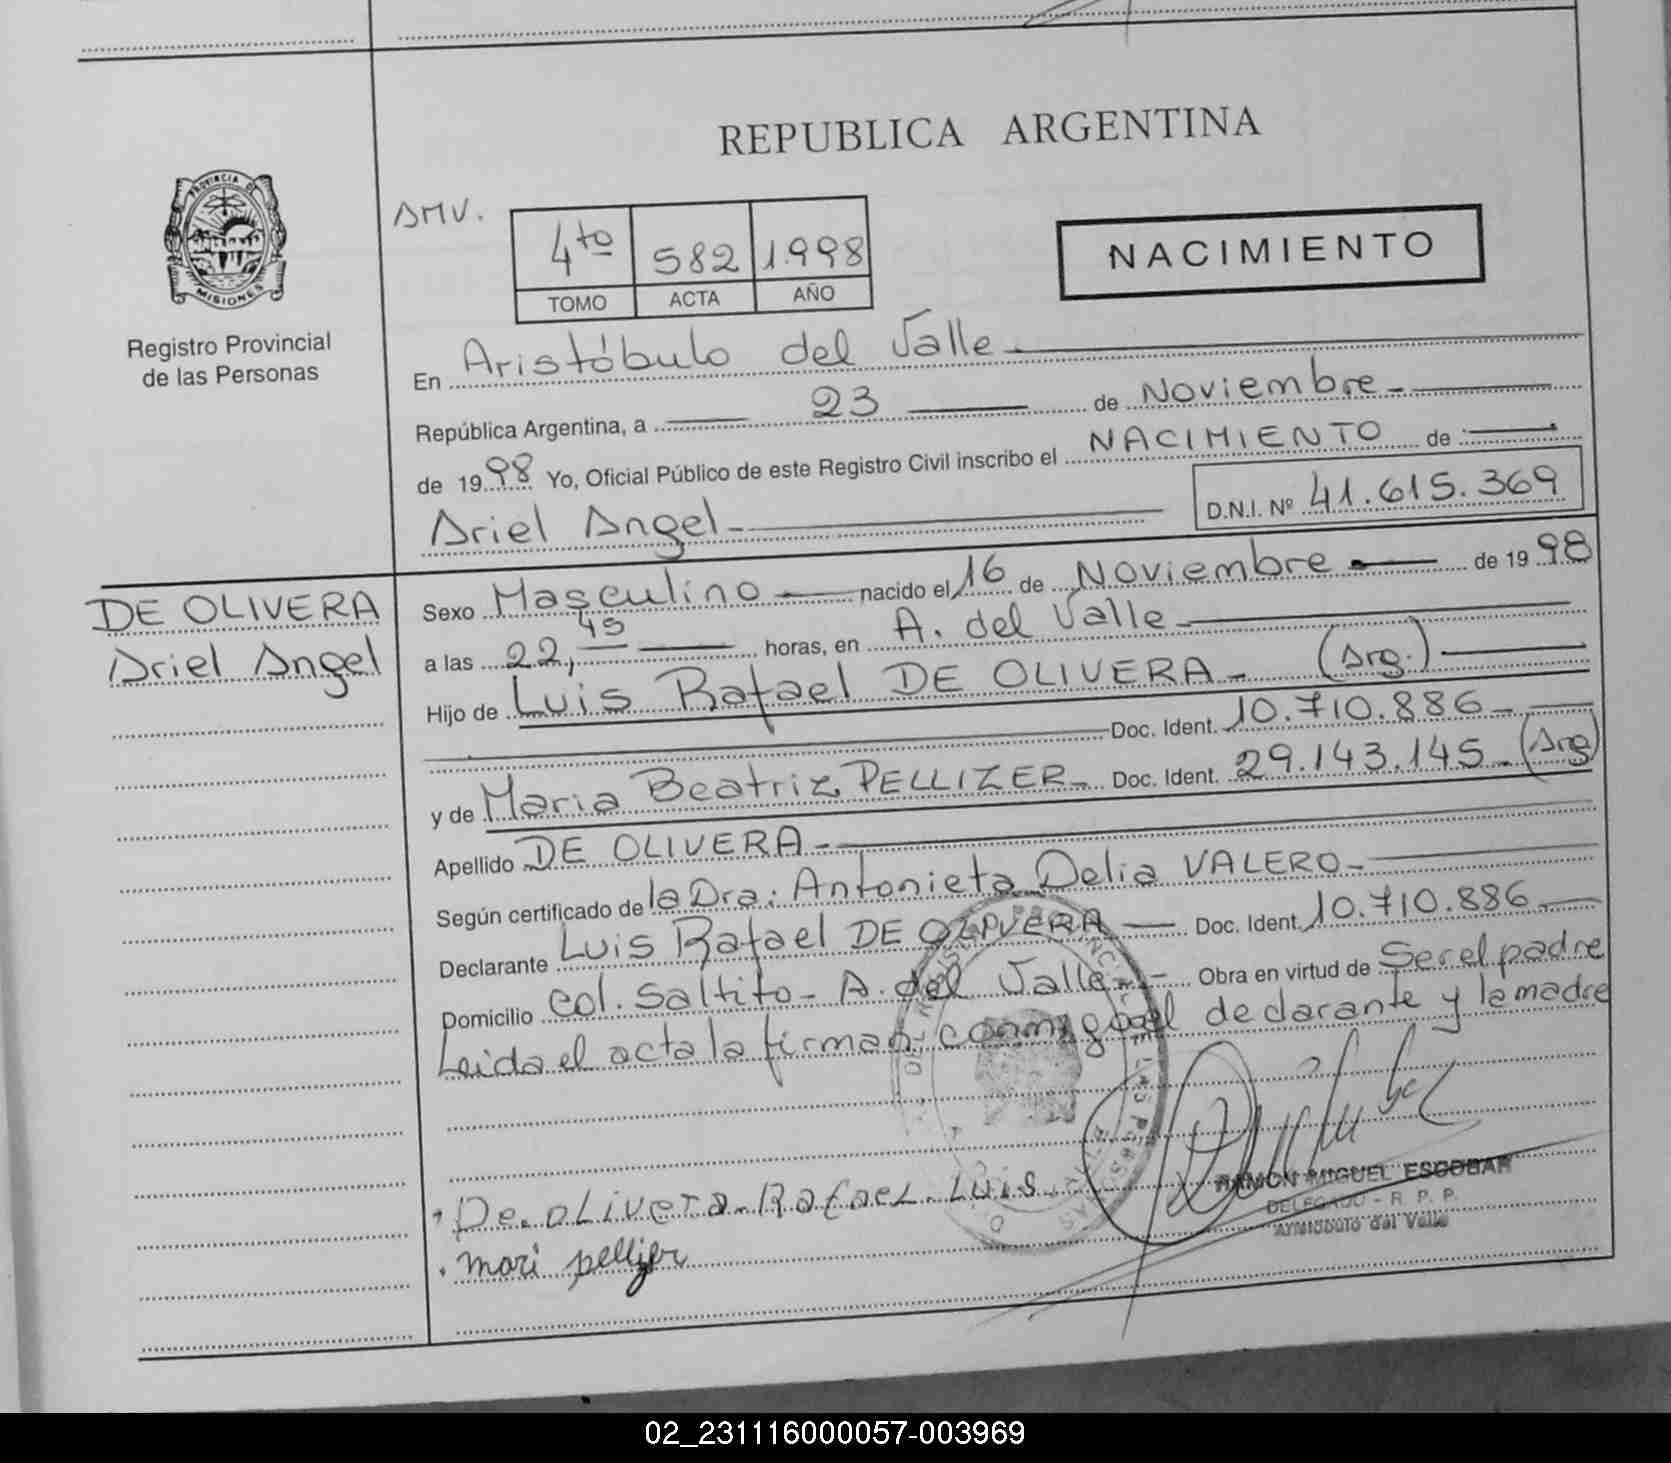 REPUBLICA ARGENTINA
PROVINCIA DE
MISIONES
Registro Provincial
de las Personas
AMV.
4to 582 1.998
TOMO ACTA AÑO
NACIMIENTO
En Aristóbulo del Valle
República Argentina, a 23 de Noviembre
de 1998 Yo, Oficial Público de este Registro Civil inscribo el NACIMIENTO de
Ariel Angel
D.N.I. Nº 41.615.369
DE OLIVERA
Ariel Angel
Sexo Masculino nacido el 16 de Noviembre de 1998
a las 22,45 horas, en A. del Valle
Hijo de Luis Rafael DE OLIVERA (Arg.)
Doc. Ident. 10.710.886
y de Maria Beatriz PELLIZER Doc. Ident. 29.143.145 (Arg)
Apellido DE OLIVERA
Según certificado de la Dra: Antonieta Delia VALERO
Declarante Luis Rafael DE OLIVERA Doc. Ident. 10.710.886
Domicilio col. Saltito - A. del Valle Obra en virtud de Ser el padre
Leida el acta la firman conmigo el declarante y la madre
De. oLivera. Rafael. Luis
RAMON MIGUEL ESCOBAR
DELEGADO - R. P. P.
Aristóbulo del Valle
mari pellizer
02_231116000057-003969